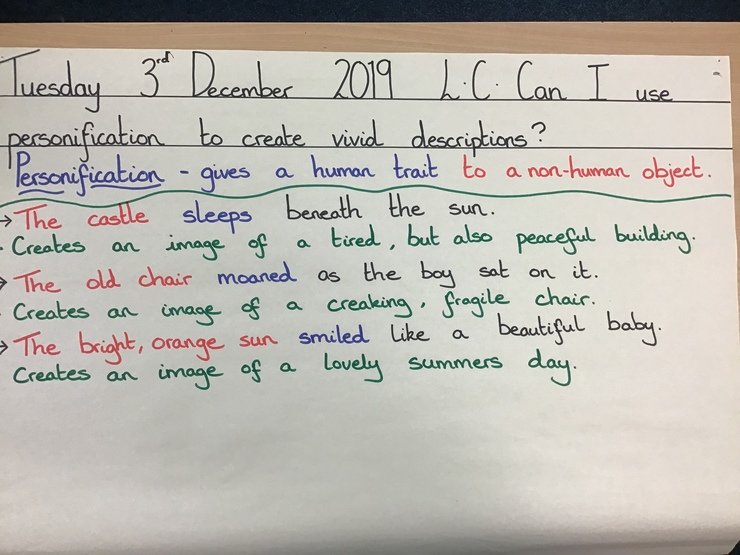 Tuesday 3rd December 2019 L.C. Can I use
personification to create vivid descriptions?
Personification - gives a human trait to a non-human object.
→ The castle sleeps beneath the sun.
- Creates an image of a tired, but also peaceful building.
→ The old chair moaned as the boy sat on it.
- Creates an image of a creaking, fragile chair.
→ The bright, orange sun smiled like a beautiful baby.
Creates an image of a lovely summers day.